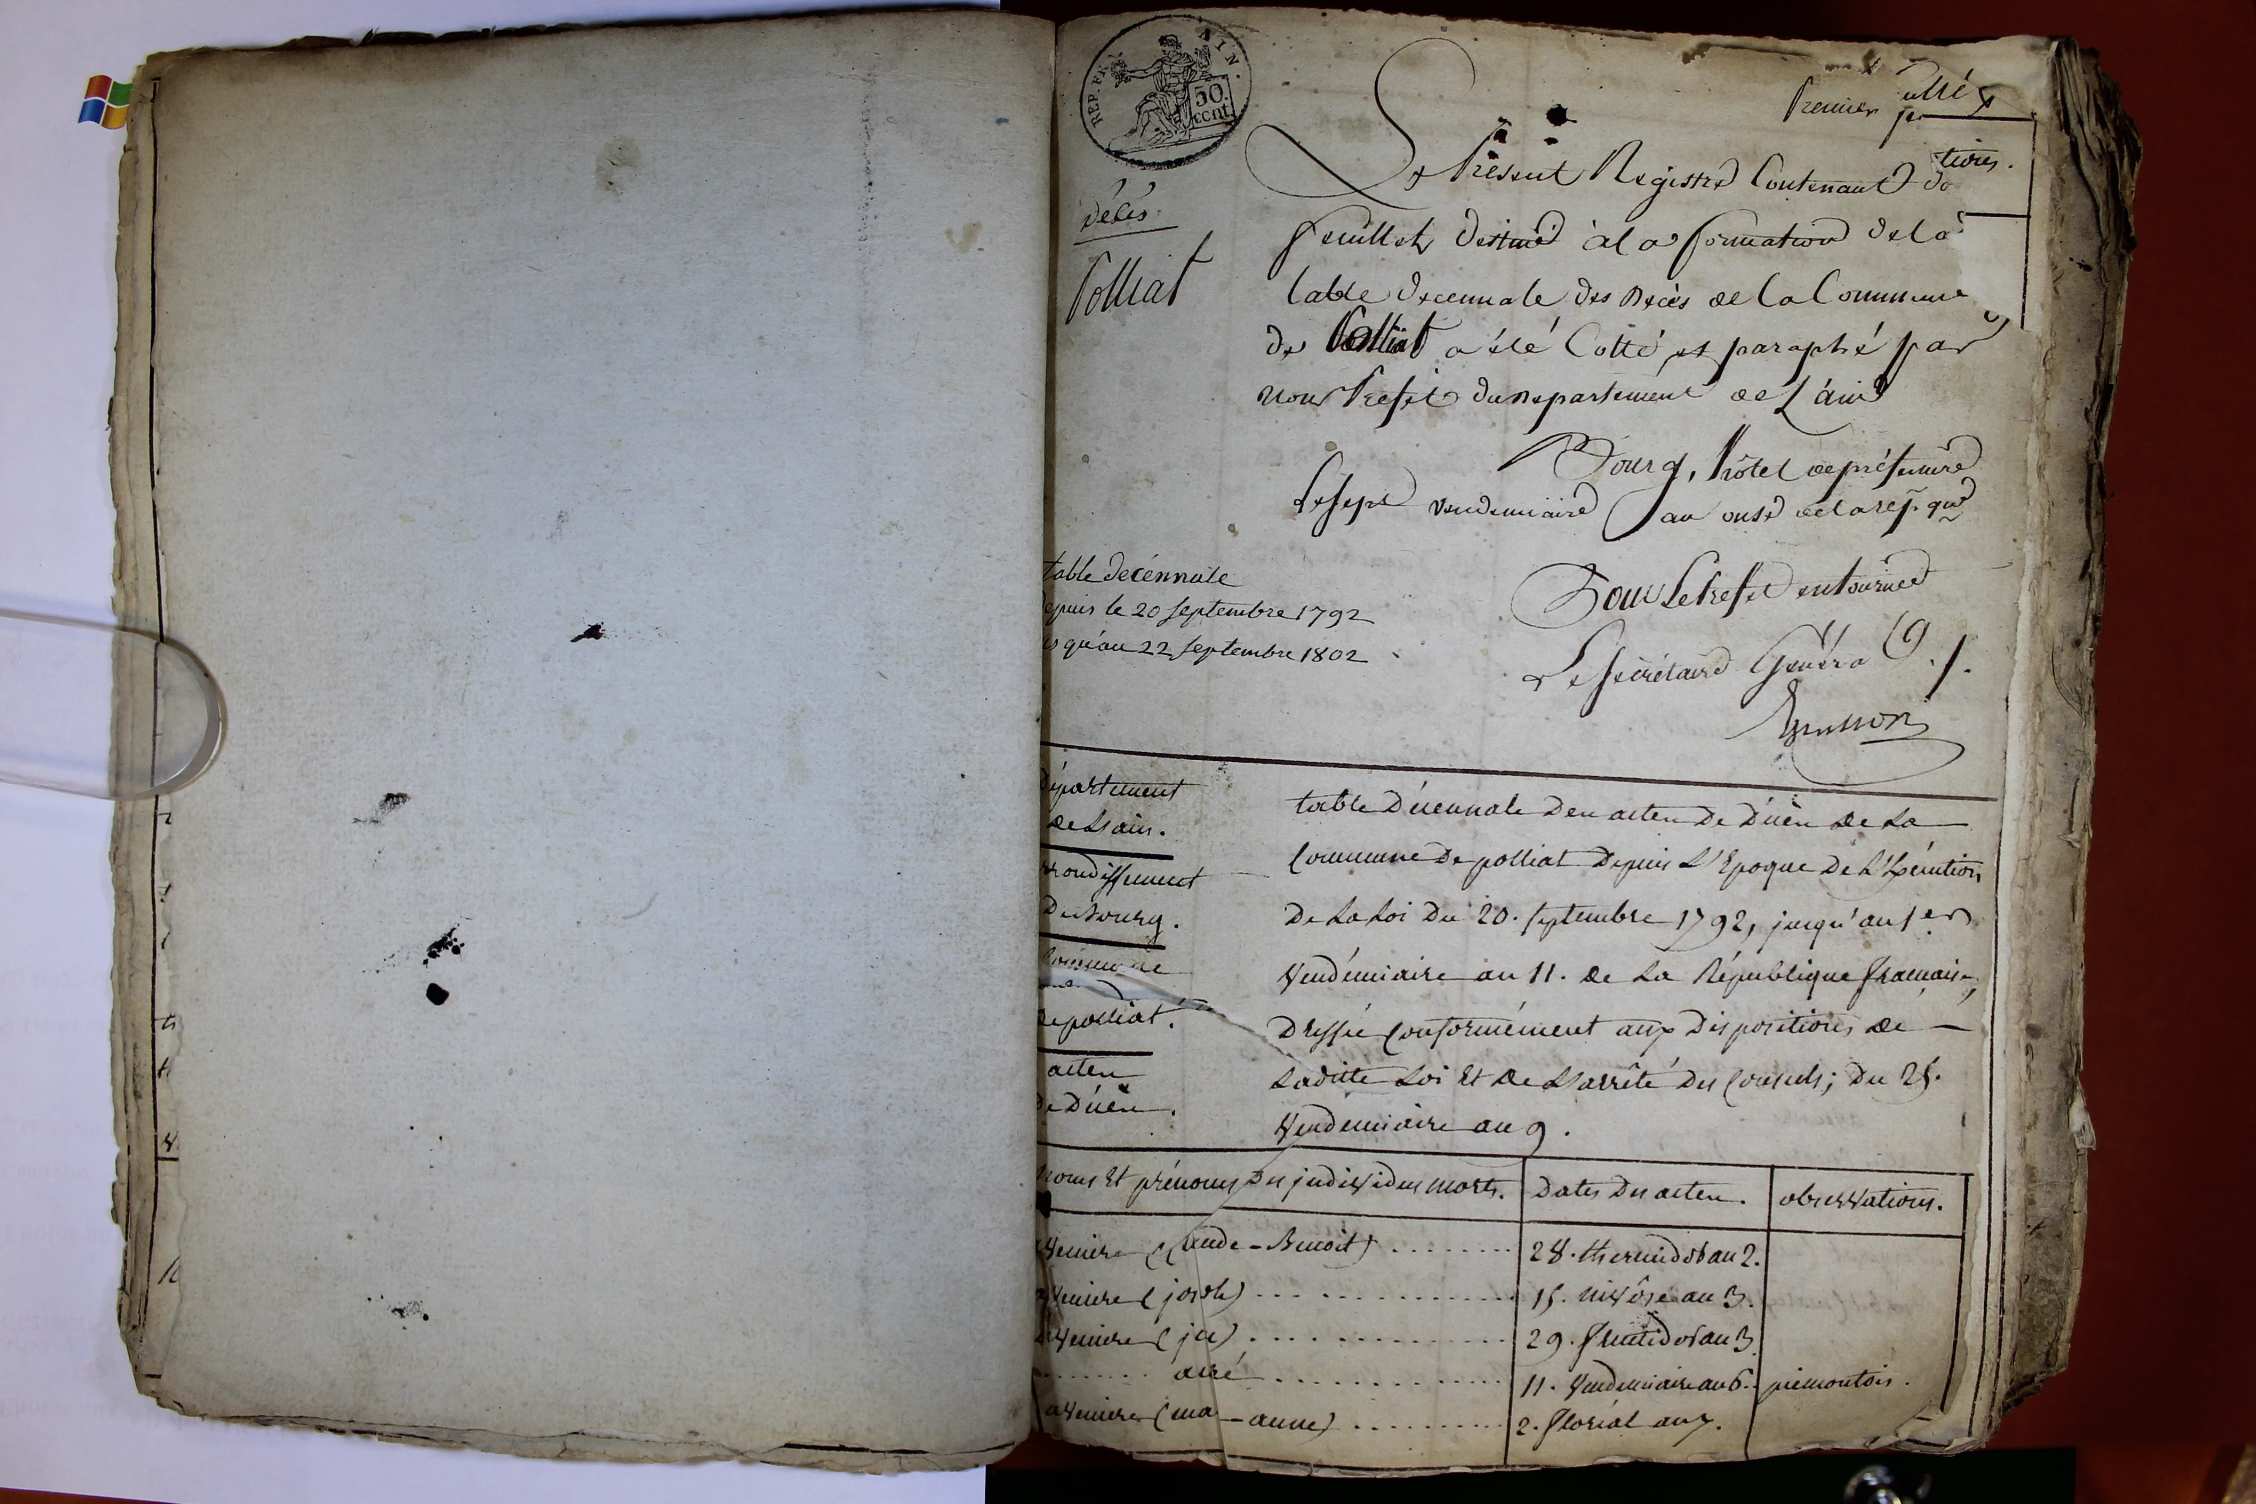 REP. FRA. AIN.
50 cent.
Premier
tions.
décès
Polliat
Le Présent Registre Contenant
feuillets destiné à la formation de la
table decennale des décès de la Commune
de Polliat a été Cotté et paraphé par
nous Préfet du département de L'ain
Bourg, hôtel de préfecture
Le sept vendemiaire an onze de la rép. que
table décennale
depuis le 20 septembre 1792
jusqu'au 22 septembre 1802
Pour Le Prefet en tournée
Le secrétaire Général
Département
de L'ain.
arrondissement
De Bourg.
Commune
de polliat.
actes
De Décès.
table Décennale Des actes De Décès de La
Commune De polliat Depuis L'Epoque De L'Exécution
De La Loi Du 20. septembre 1792, jusqu'au 1er
Vendémiaire an 11. de La République française,
Dressée Conformément aux Dispositions de
Laditte Loi Et de L'arrêté Des Consuls; Du 25.
Vendemiaire an 9.
Noms Et prénoms Des individus morts. Dates Des actes. observations.
(Claude-Benoit) 28. thermidor an 2.
(joseph) 15. nivôse an 3.
29. fructidor an 3.
11. Vendemiaire an 6. piemontois.
(ma-anne) 2. floréal an 7.